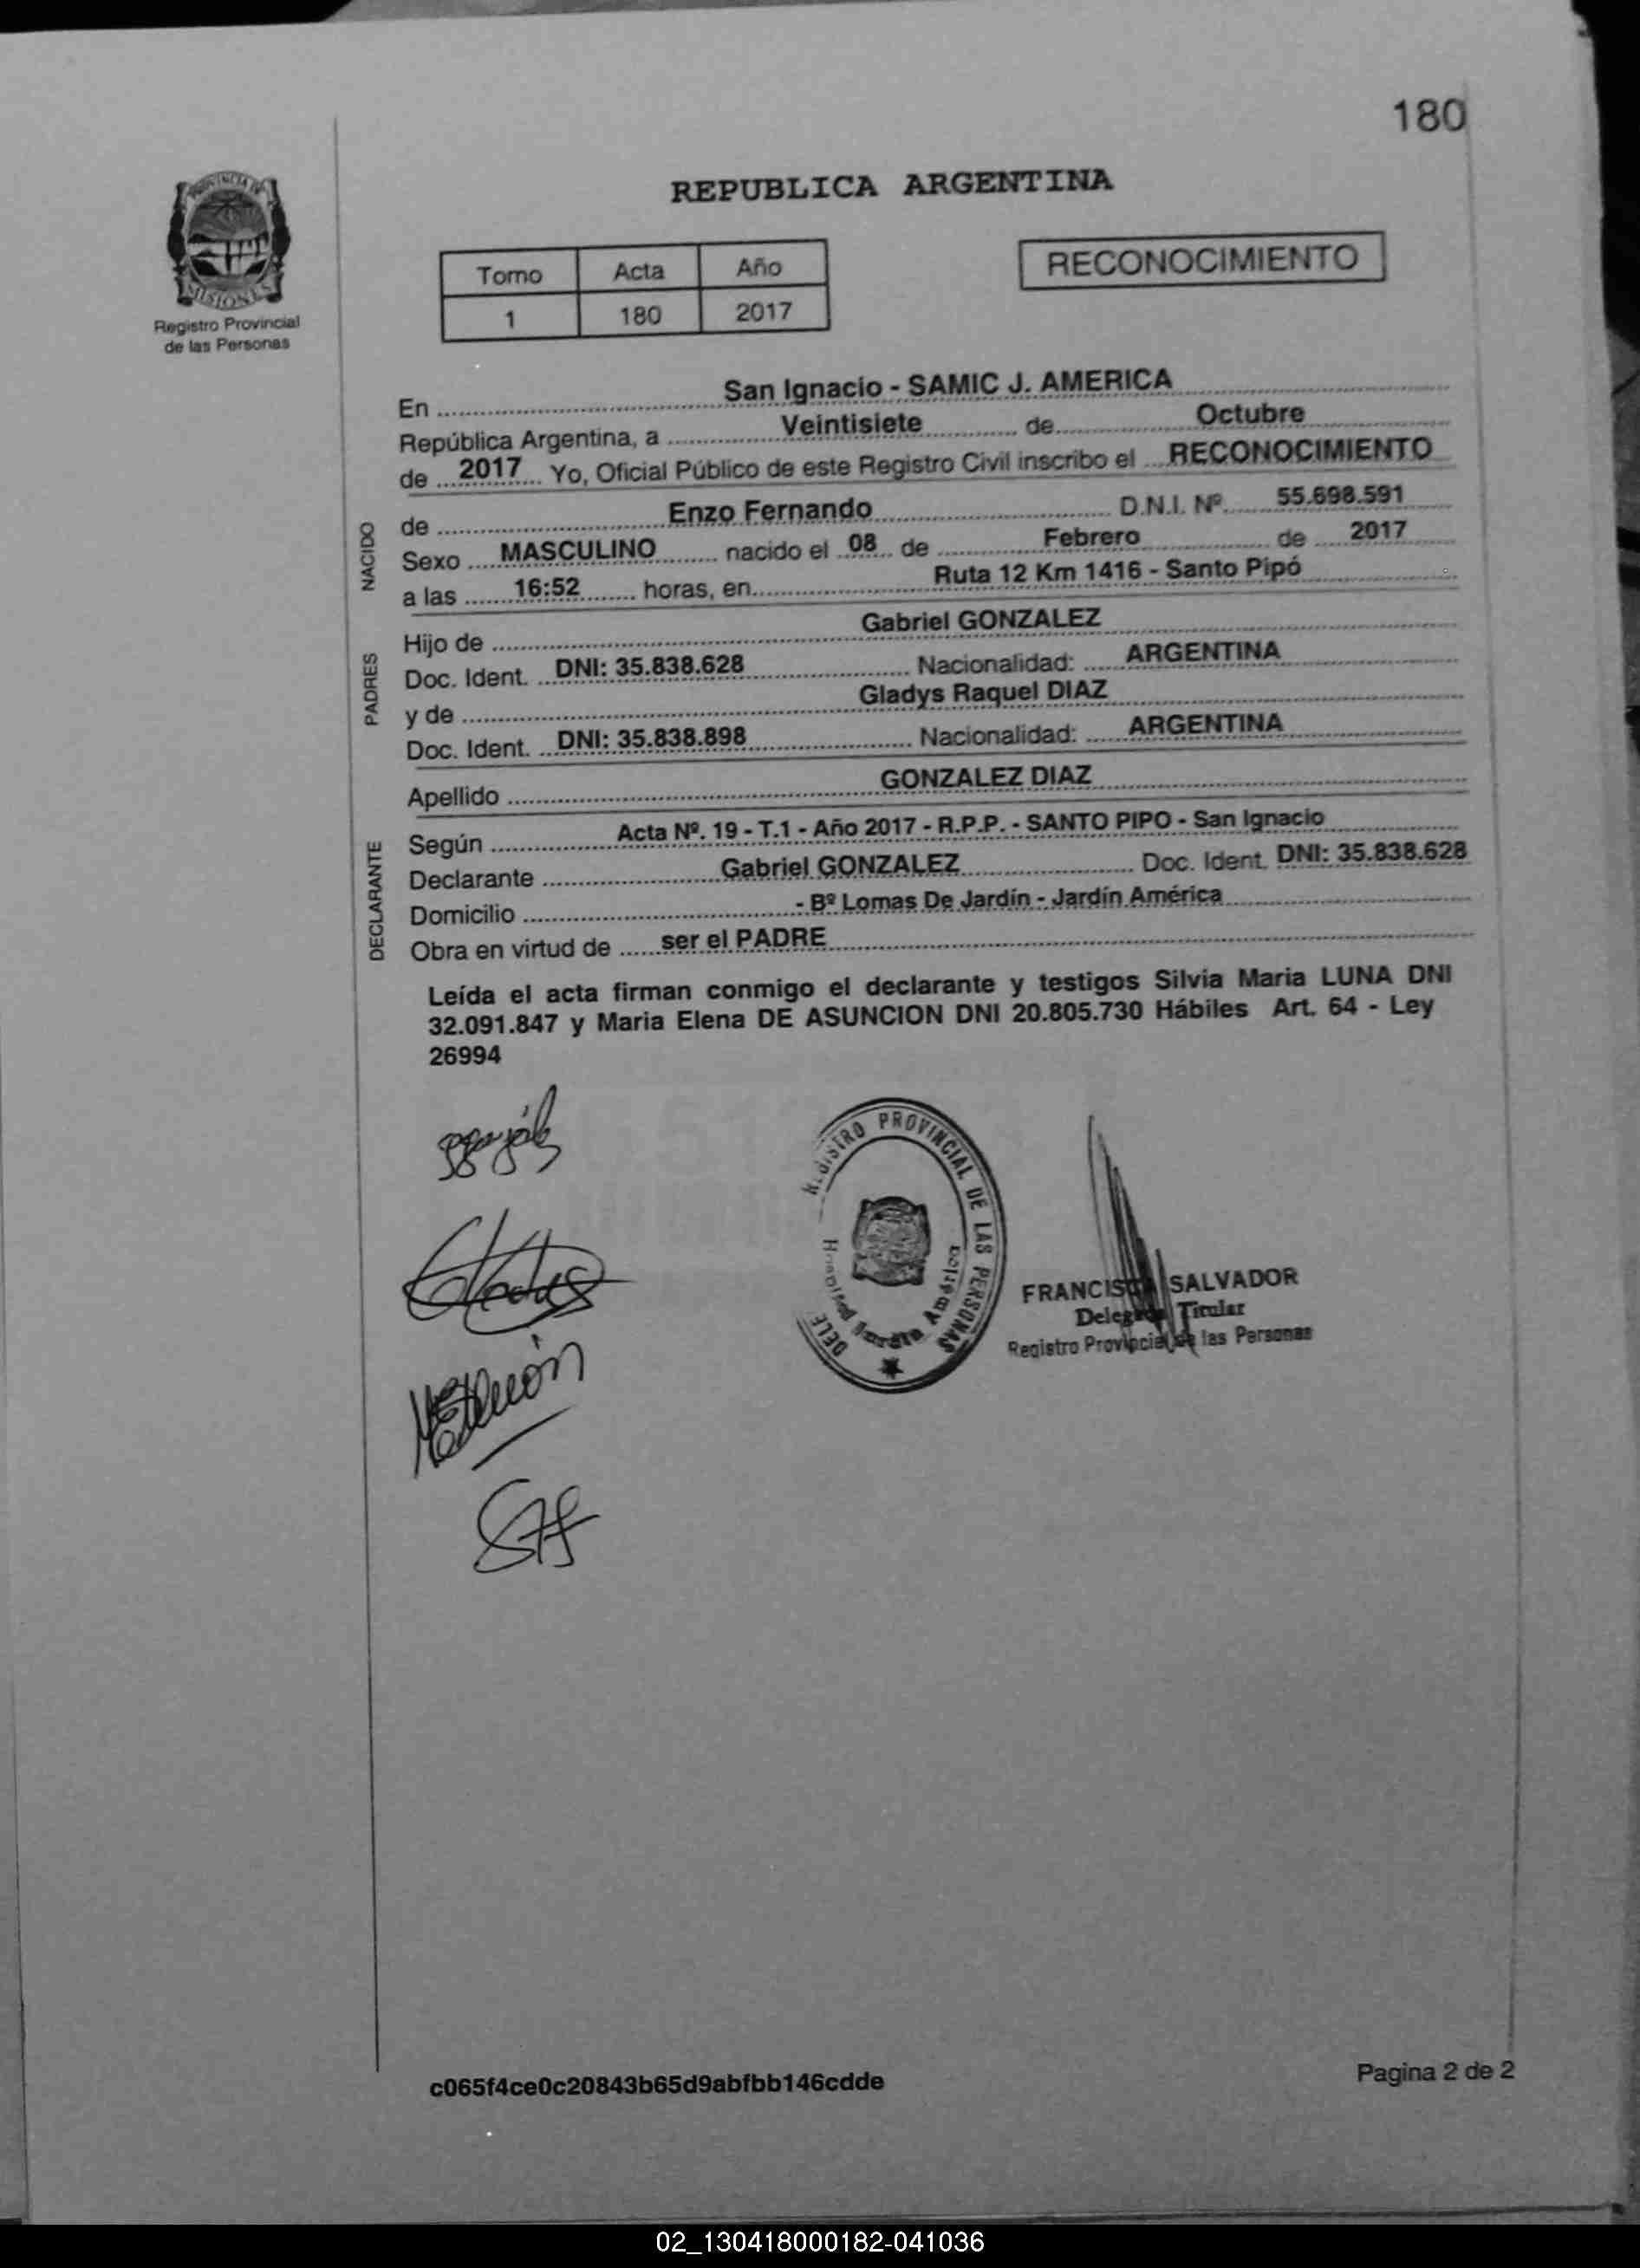 180
PROVINCIA DE
MISIONES
Registro Provincial
de las Personas
REPUBLICA ARGENTINA
Tomo Acta Año
1 180 2017
RECONOCIMIENTO
En San Ignacio - SAMIC J. AMERICA
República Argentina, a Veintisiete de Octubre
de 2017 Yo, Oficial Público de este Registro Civil inscribo el RECONOCIMIENTO
NACIDO
de Enzo Fernando D.N.I. Nº 55.698.591
Sexo MASCULINO nacido el 08 de Febrero de 2017
a las 16:52 horas, en Ruta 12 Km 1416 - Santo Pipó
PADRES
Hijo de Gabriel GONZALEZ
Doc. Ident. DNI: 35.838.628 Nacionalidad: ARGENTINA
y de Gladys Raquel DIAZ
Doc. Ident. DNI: 35.838.898 Nacionalidad: ARGENTINA
Apellido GONZALEZ DIAZ
DECLARANTE
Según Acta Nº. 19 - T.1 - Año 2017 - R.P.P. - SANTO PIPO - San Ignacio
Declarante Gabriel GONZALEZ Doc. Ident. DNI: 35.838.628
Domicilio - Bº Lomas De Jardín - Jardín América
Obra en virtud de ser el PADRE
Leída el acta firman conmigo el declarante y testigos Silvia Maria LUNA DNI
32.091.847 y Maria Elena DE ASUNCION DNI 20.805.730 Hábiles Art. 64 - Ley
26994
REGISTRO PROVINCIAL DE LAS PERSONAS
Hospital Jardín América
DELE
FRANCISCO SALVADOR
Delegado Titular
Registro Provincial de las Personas
c065f4ce0c20843b65d9abfbb146cdde
Pagina 2 de 2
02_130418000182-041036